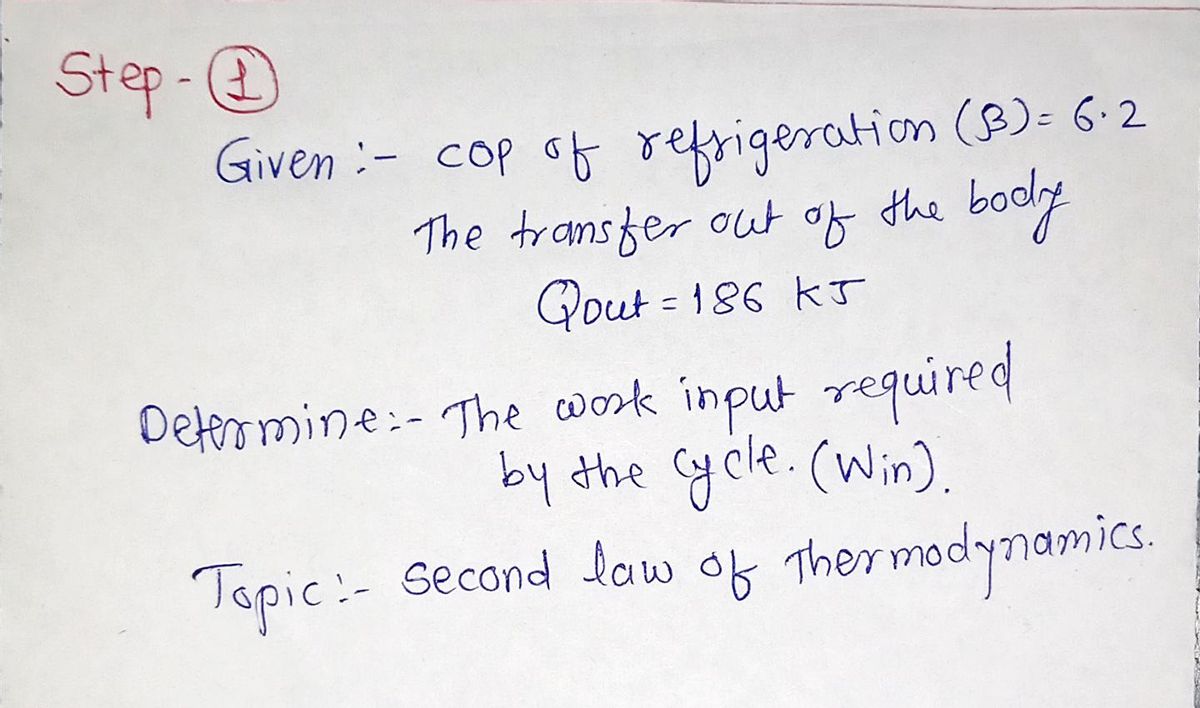 Step - ①
Given :- COP of refrigeration (β) = 6.2
The transfer out of the body
Qout = 186 KJ
Determine :- The work input required
by the cycle. (Win).
Topic :- Second law of Thermodynamics.